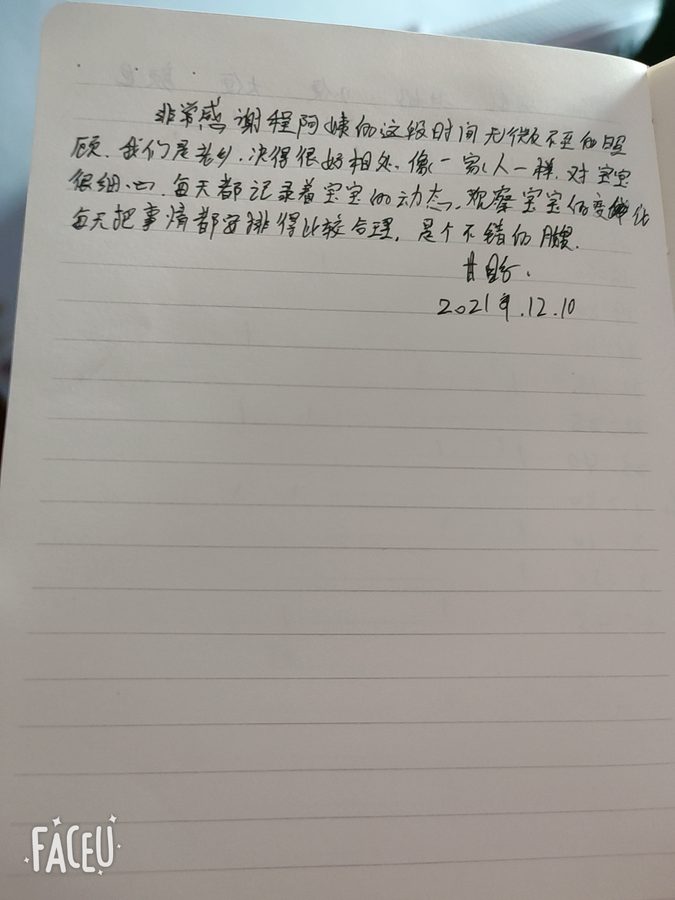 非常感谢程阿姨的这段时间无微不至的照
顾.我们是老乡.决得很好相处.像一家人一样.对宝宝
很细心.每天都记录着宝宝的动态.观察宝宝的变化
每天把事情都安排得比较合理.是个不错的月嫂.
2021年.12.10
FACEU